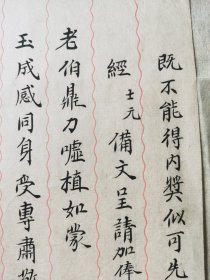 既不能得内獎似可先
經士元備文呈請加俸
老伯鼎力噓植如蒙
玉成感同身受專肅敬